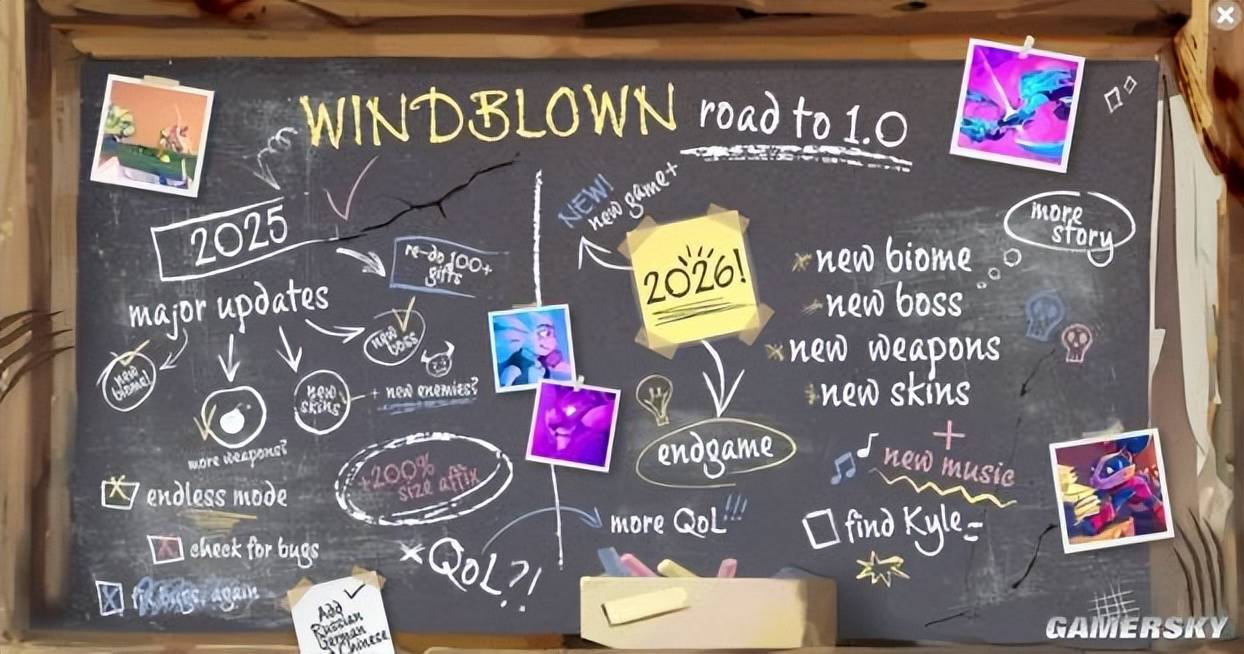 WINDBLOWN road to 1.0
2025
re-do 100+
gifts
major updates
new
biome!
more weapons?
new
skins
new
boss
+ new enemies?
endless mode
check for bugs
fix bugs, again
+200%
size affix
QoL?!
Add
Russian
German
Chinese
NEW!
new game+
2026!
endgame
more QoL!!!
more
story
new biome
new boss
new weapons
new skins
+
new music
find Kyle
GAMERSKY